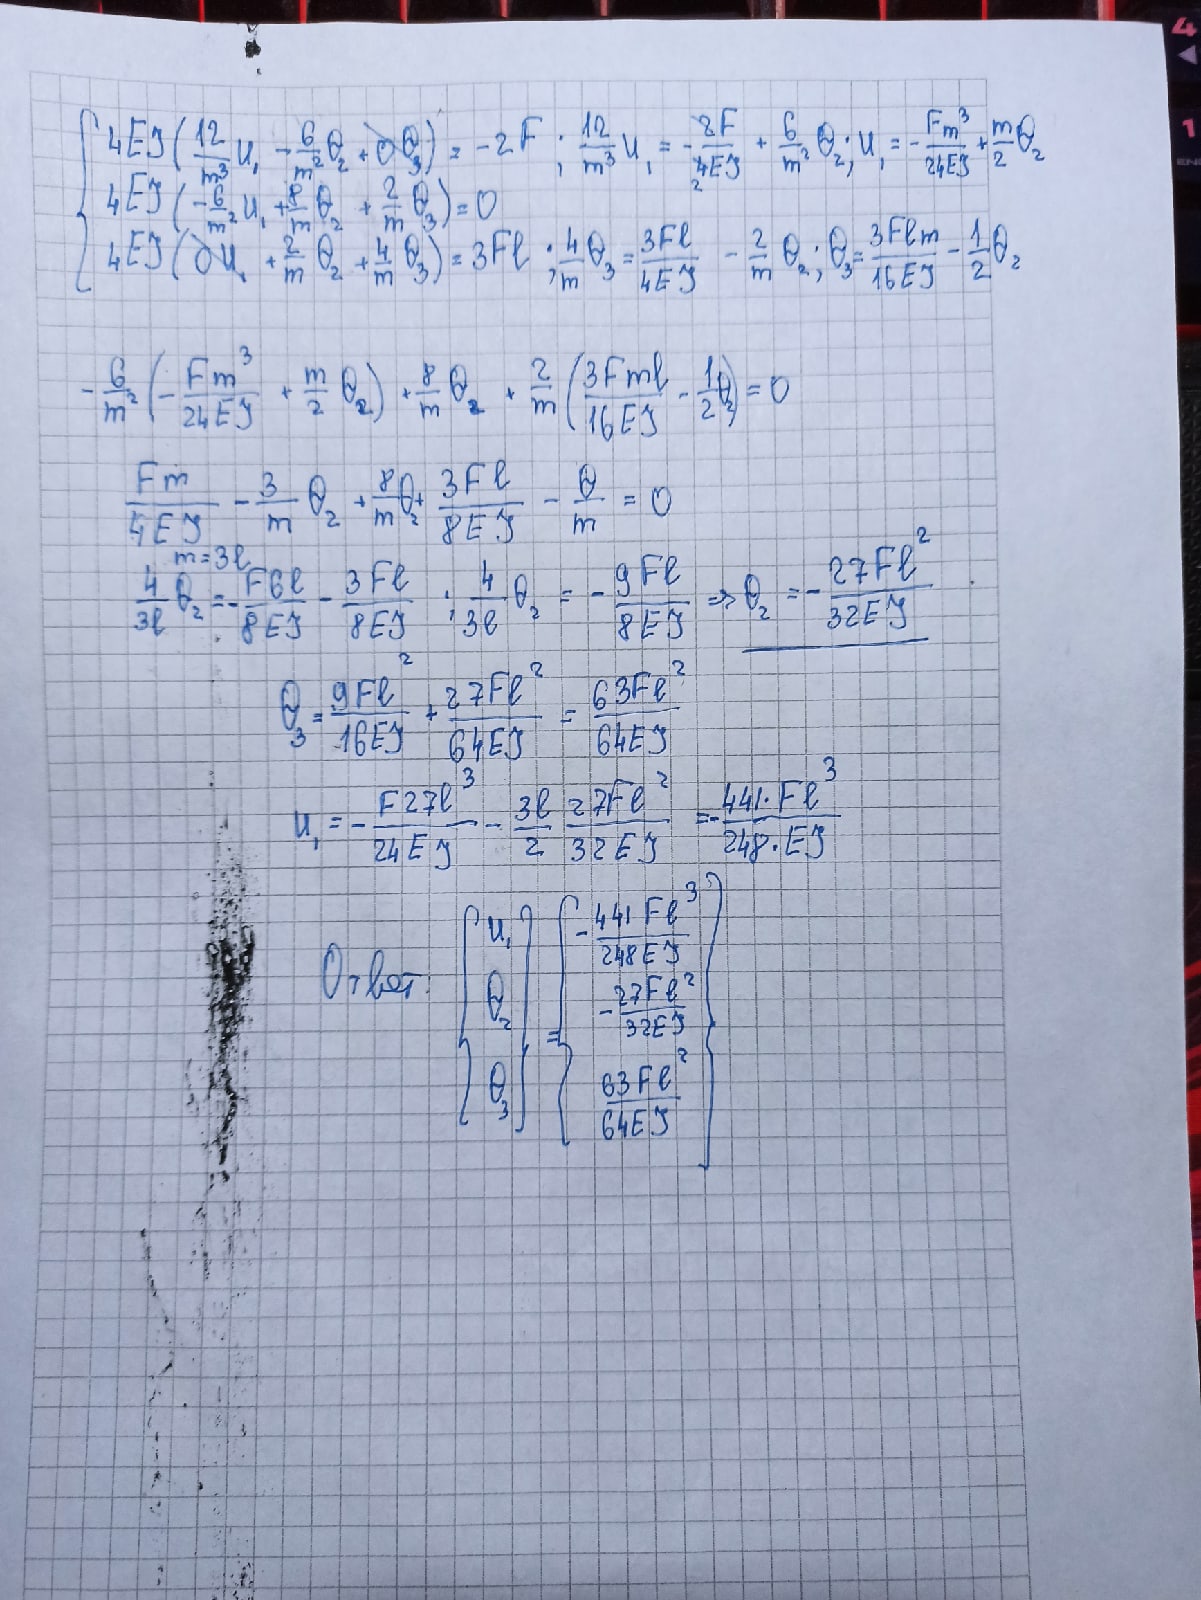 4EJ(12/m³ u₁ - 6/m² θ₂ + 0θ₃) = -2F ; 12/m³ u₁ = -2F/4EJ + 6/m² θ₂ ; u₁ = -Fm³/24EJ + m/2 θ₂
4EJ(-6/m² u₁ + 8/m θ₂ + 2/m θ₃) = 0
4EJ(0u₁ + 2/m θ₂ + 4/m θ₃) = 3Fl ; 4/m θ₃ = 3Fl/4EJ - 2/m θ₂ ; θ₃ = 3Flm/16EJ - 1/2 θ₂
-6/m² (-Fm³/24EJ + m/2 θ₂) + 8/m θ₂ + 2/m (3Fml/16EJ - 1/2 θ₂) = 0
Fm/4EJ - 3/m θ₂ + 8/m θ₂ + 3Fl/8EJ - θ/m = 0
m=3l
4/3l θ₂ = -F6l/8EJ - 3Fl/8EJ ; 4/3l θ₂ = -9Fl/8EJ => θ₂ = -27Fl²/32EJ
θ₃ = 9Fl²/16EJ + 27Fl²/64EJ = 63Fl²/64EJ
u₁ = -F27l³/24EJ - 3l/2 27Fl²/32EJ = -441·Fl³/248·EJ
Ответ: {u₁ θ₂ θ₃} = {-441Fl³/248EJ -27Fl²/32EJ 63Fl²/64EJ}
4
1